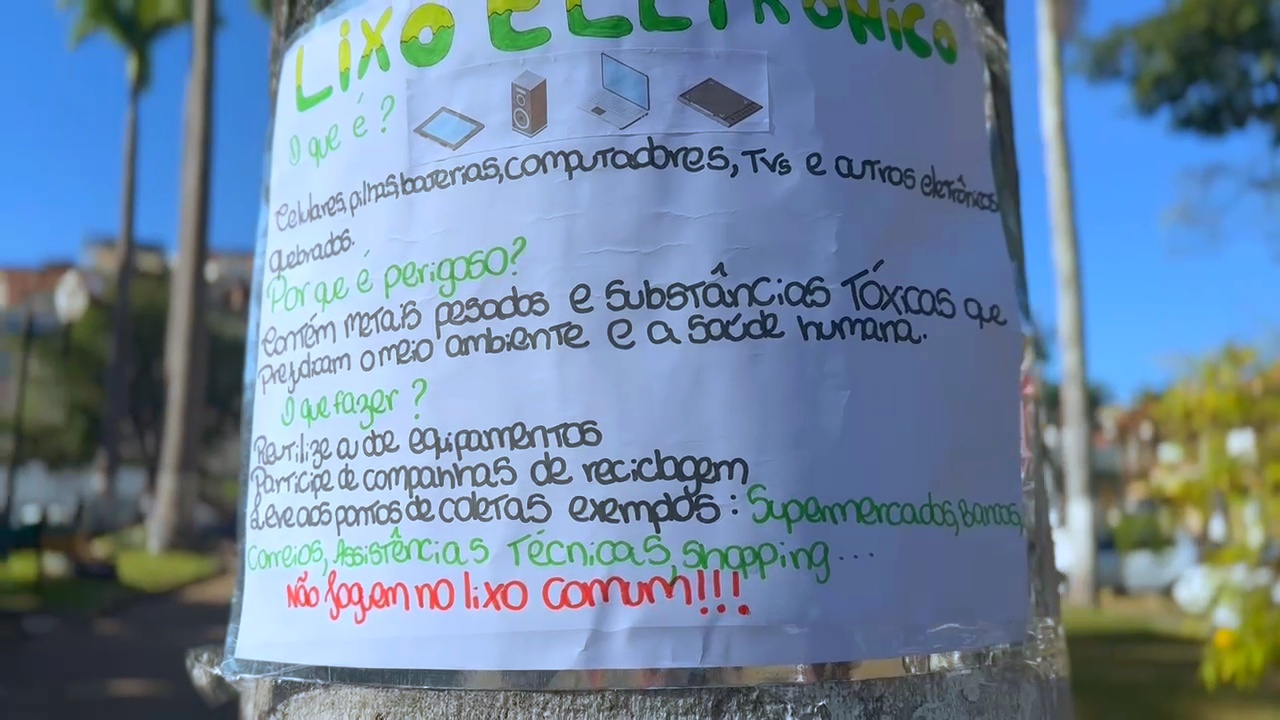 LIXO ELETRÔNICO
O que é?
Celulares, pilhas, baterias, computadores, TVs e outros eletrônicos
quebrados.
Por que é perigoso?
Contém metais pesados e substâncias tóxicas que
prejudicam o meio ambiente e a saúde humana.
O que fazer?
Reutilize ou doe equipamentos
Participe de companhas de reciclagem
Leve aos pontos de coletas exemplos: Supermercados, Bancos,
Correios, Assistências Técnicas, shopping...
Não jogem no lixo comum!!!